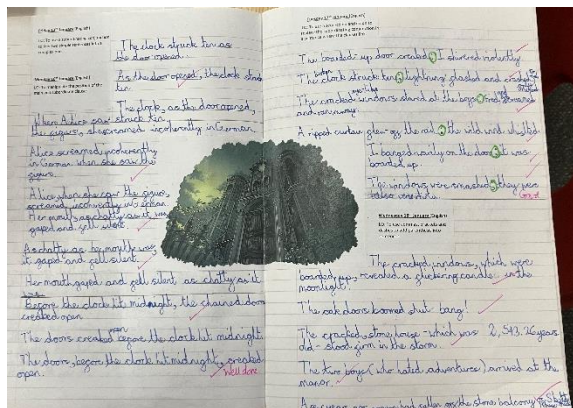 The clock struck ten as
the door opened.
As the door opened, the clock struck
ten.
The clock, as the door opened,
struck ten.
When Alice saw
the figure, she screamed incoherently in German.
Alice screamed incoherently
in German when she saw the
figure.
Alice, when she saw the figure,
screamed incoherently in German.
Her mouth, as chatty as it was,
gaped and fell silent.
As chatty as her mouth was,
it gaped and fell silent.
Her mouth gaped and fell silent as chatty as it
was.
Before the clock hit midnight, the chained doors
creaked open.
The doors creaked open before the clock hit midnight.
The doors, before the clock hit midnight, creaked
open.
Well done
The boarded up door creaked; I shivered violently.
The clock struck ten; lightning flashed and
The cracked windows stared at the boys; and
and ran away.
A ripped curtain flew off the rail; the wild wind whistled.
I banged noisily on the door; it was
boarded up.
The windows were smashed; they were
The cracked windows, which were
boarded up, revealed a flickering candle in the
moonlight.
The oak doors boomed shut - bang!
The cracked, stone house - which was 2,543.26 years
old - stood firm in the storm.
The two boys (who rated adventure) arrived at the
manor.
on the stone balcony